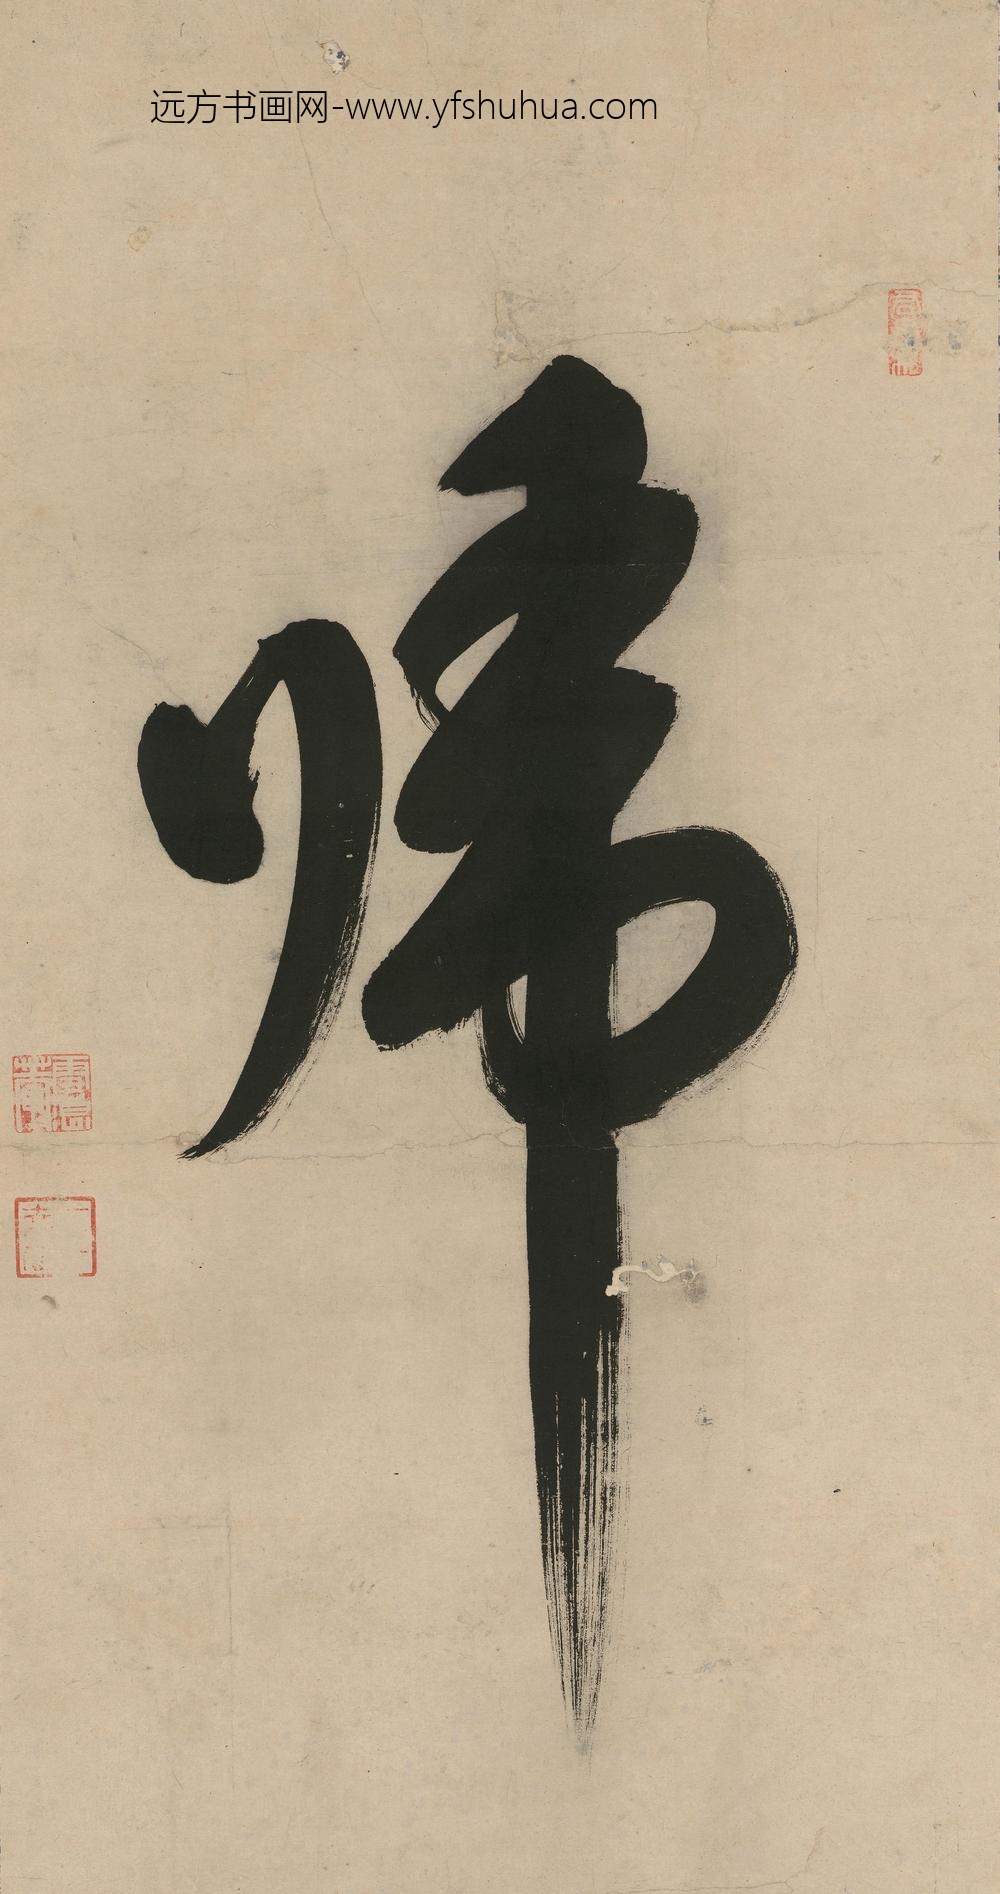 远方书画网-www.yfshuhua.com
帰